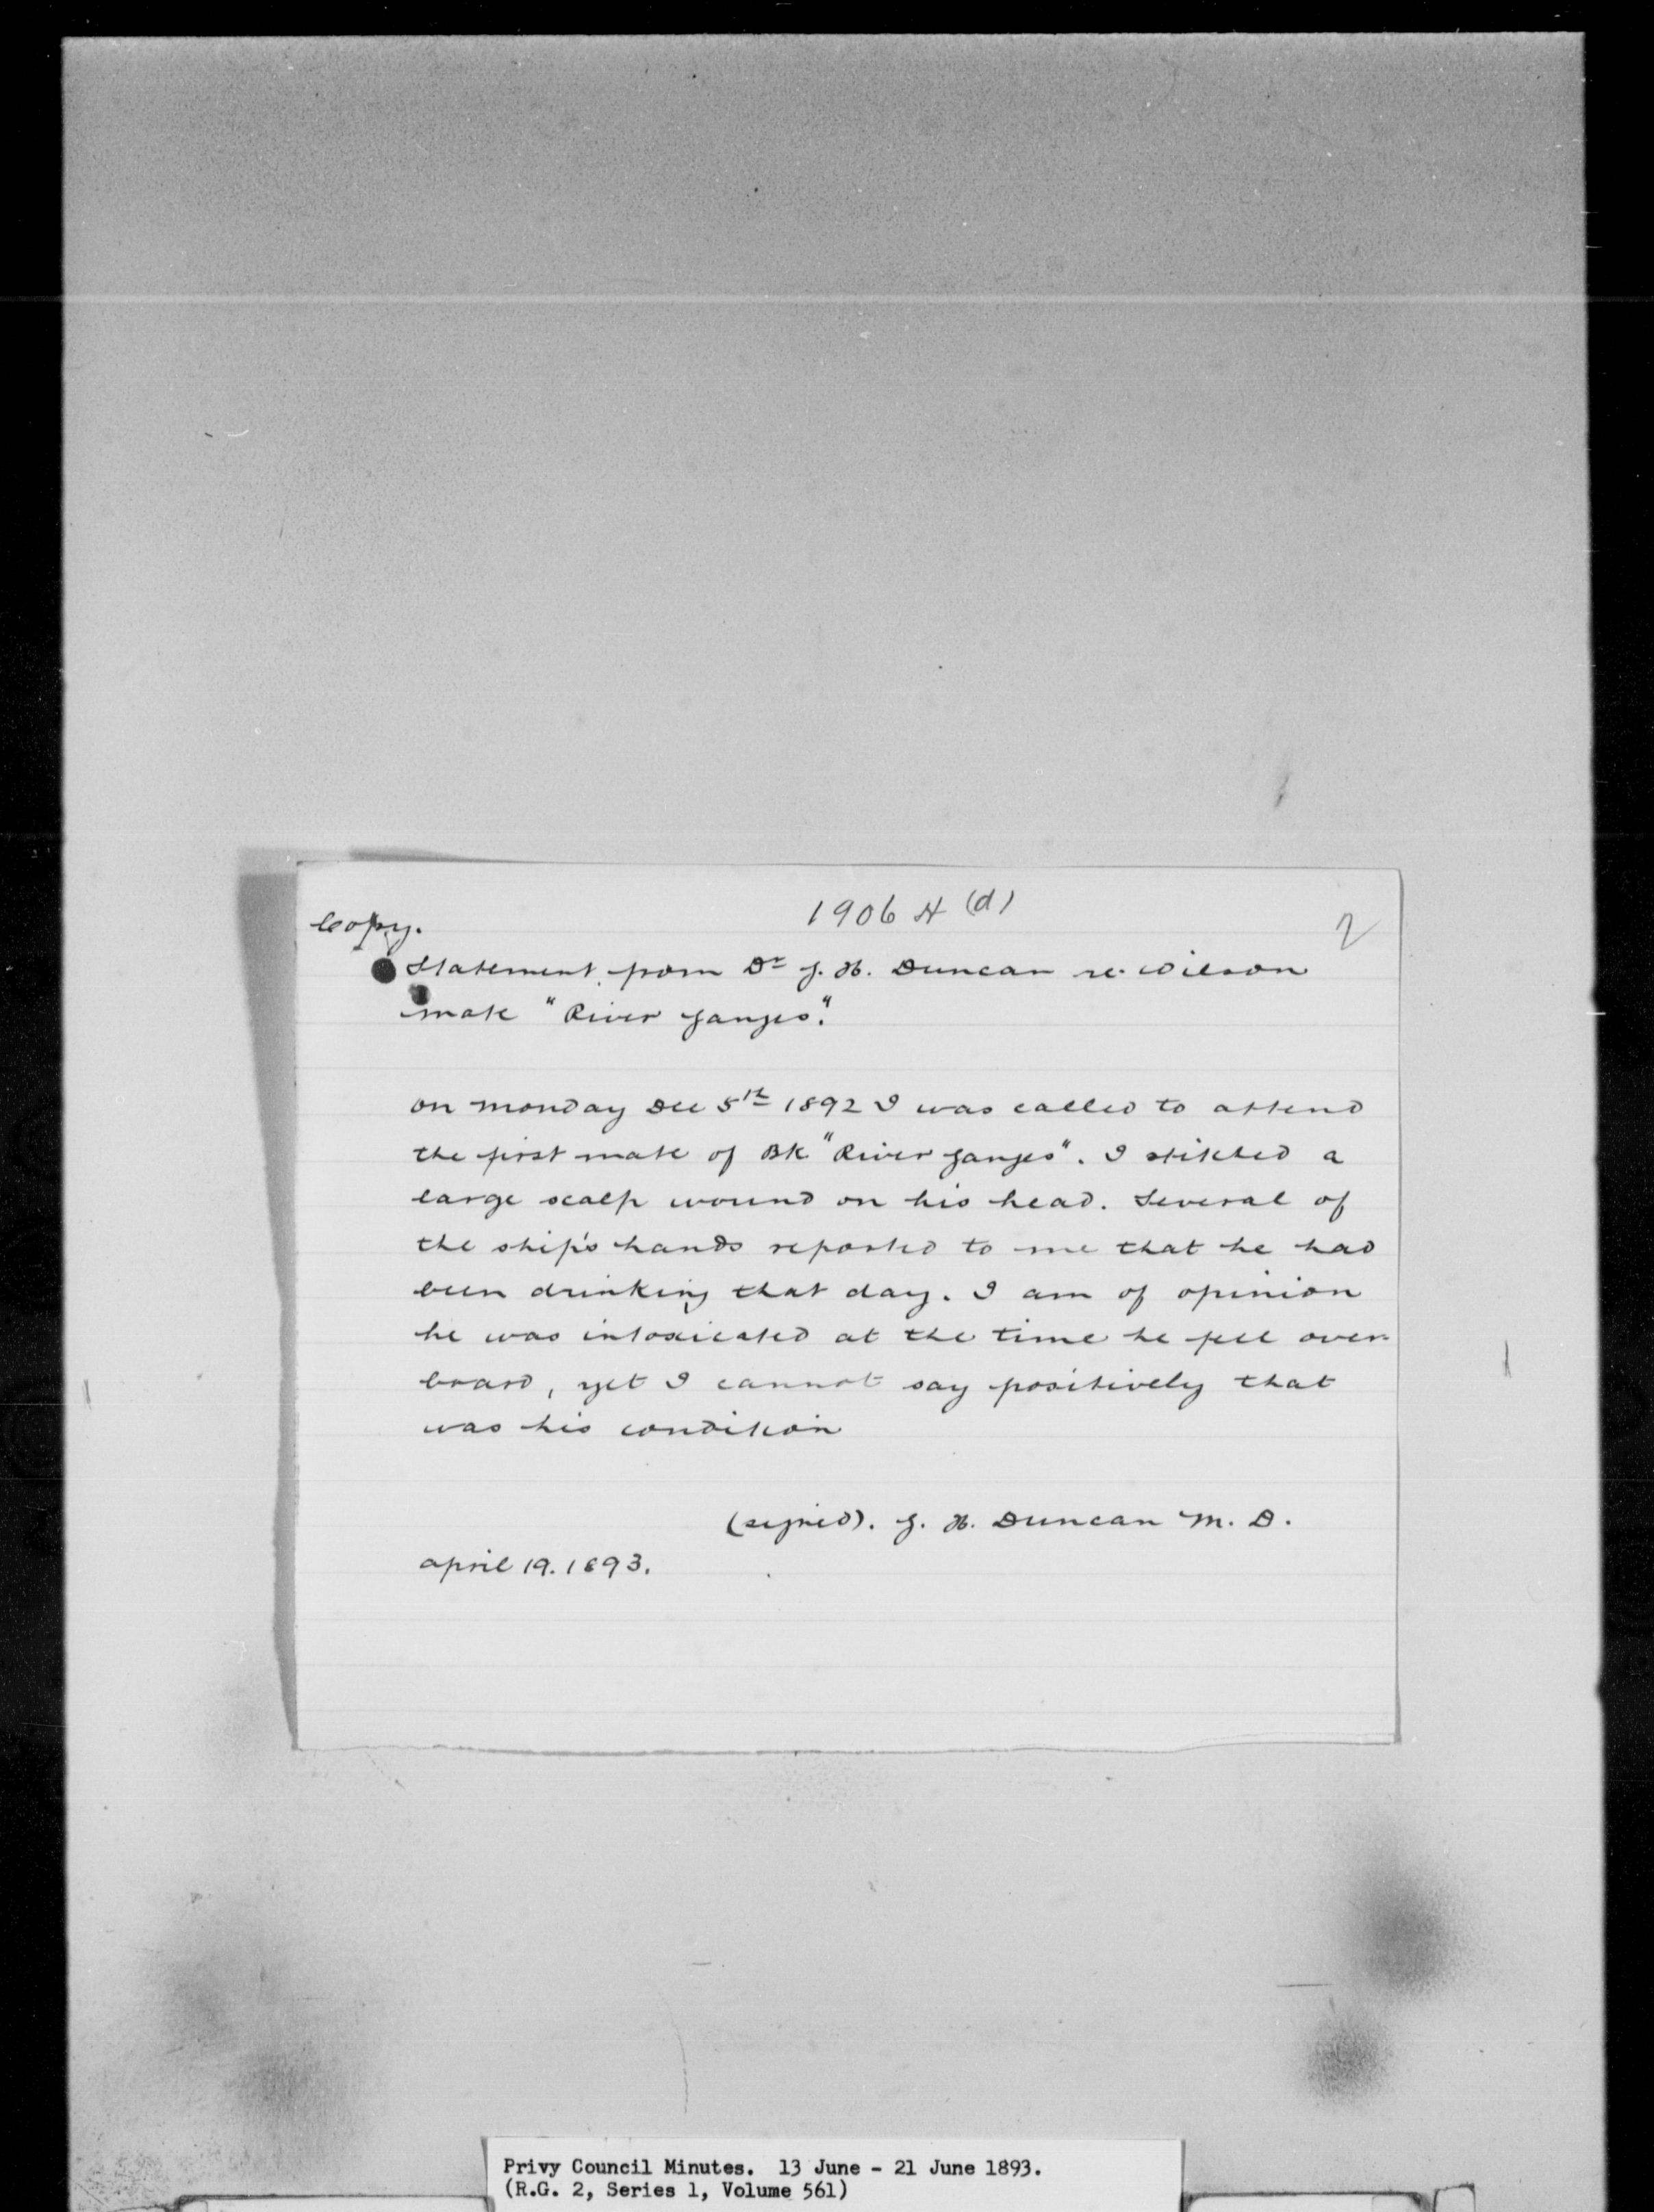 1906 H (d)
Copy.
2
Statement from Dr J. H. Duncan re. Wilson
mate "River Ganges."
On Monday Dec 5th 1892 I was called to attend
the first mate of Bk "River Ganges". I stitched a
large scalp wound on his head. Several of
the ship's hands reported to me that he had
been drinking that day. I am of opinion
he was intoxicated at the time he fell over-
board, yet I cannot say positively that
was his condition
(signed). J. H. Duncan M. D.
April 19. 1893.
Privy Council Minutes. 13 June - 21 June 1893.
(R.G. 2, Series 1, Volume 561)